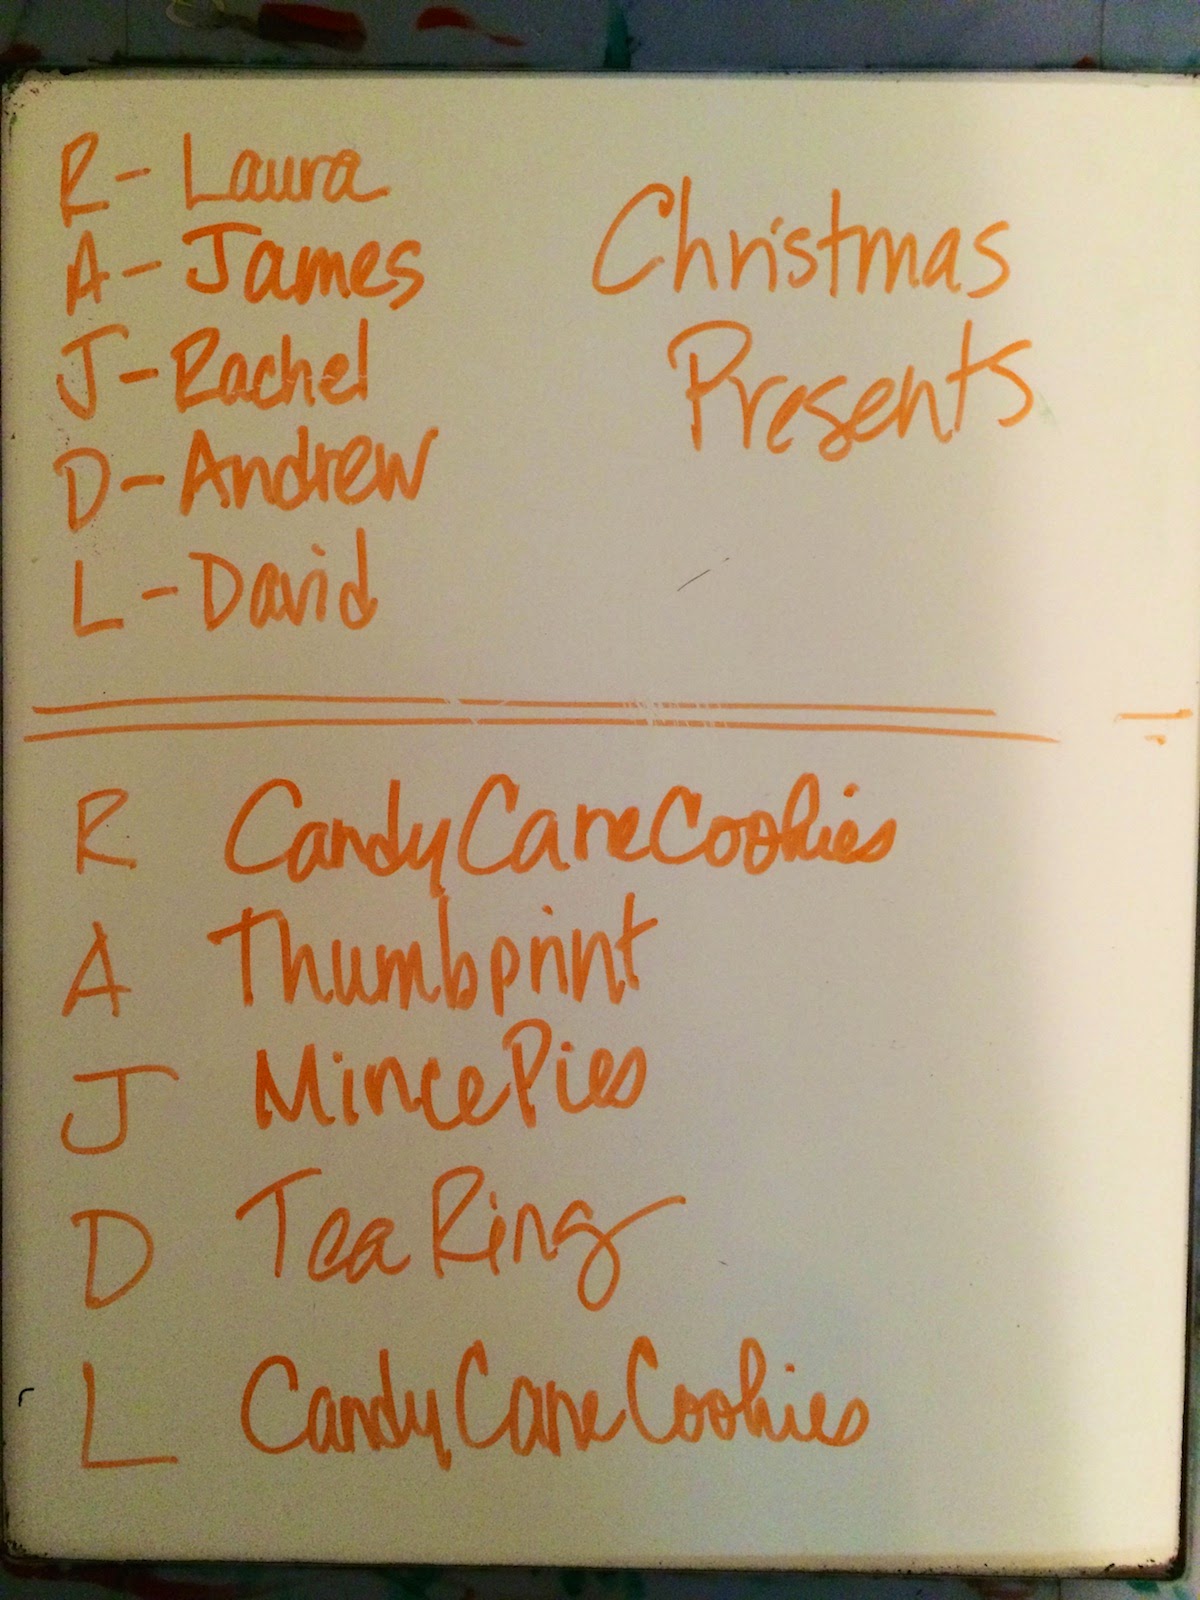 R- Laura
A- James
J- Rachel
D- Andrew
L- David
Christmas
Presents
R Candy Cane Cookies
A Thumbprint
J Mince Pies
D Tea Ring
L Candy Cane Cookies